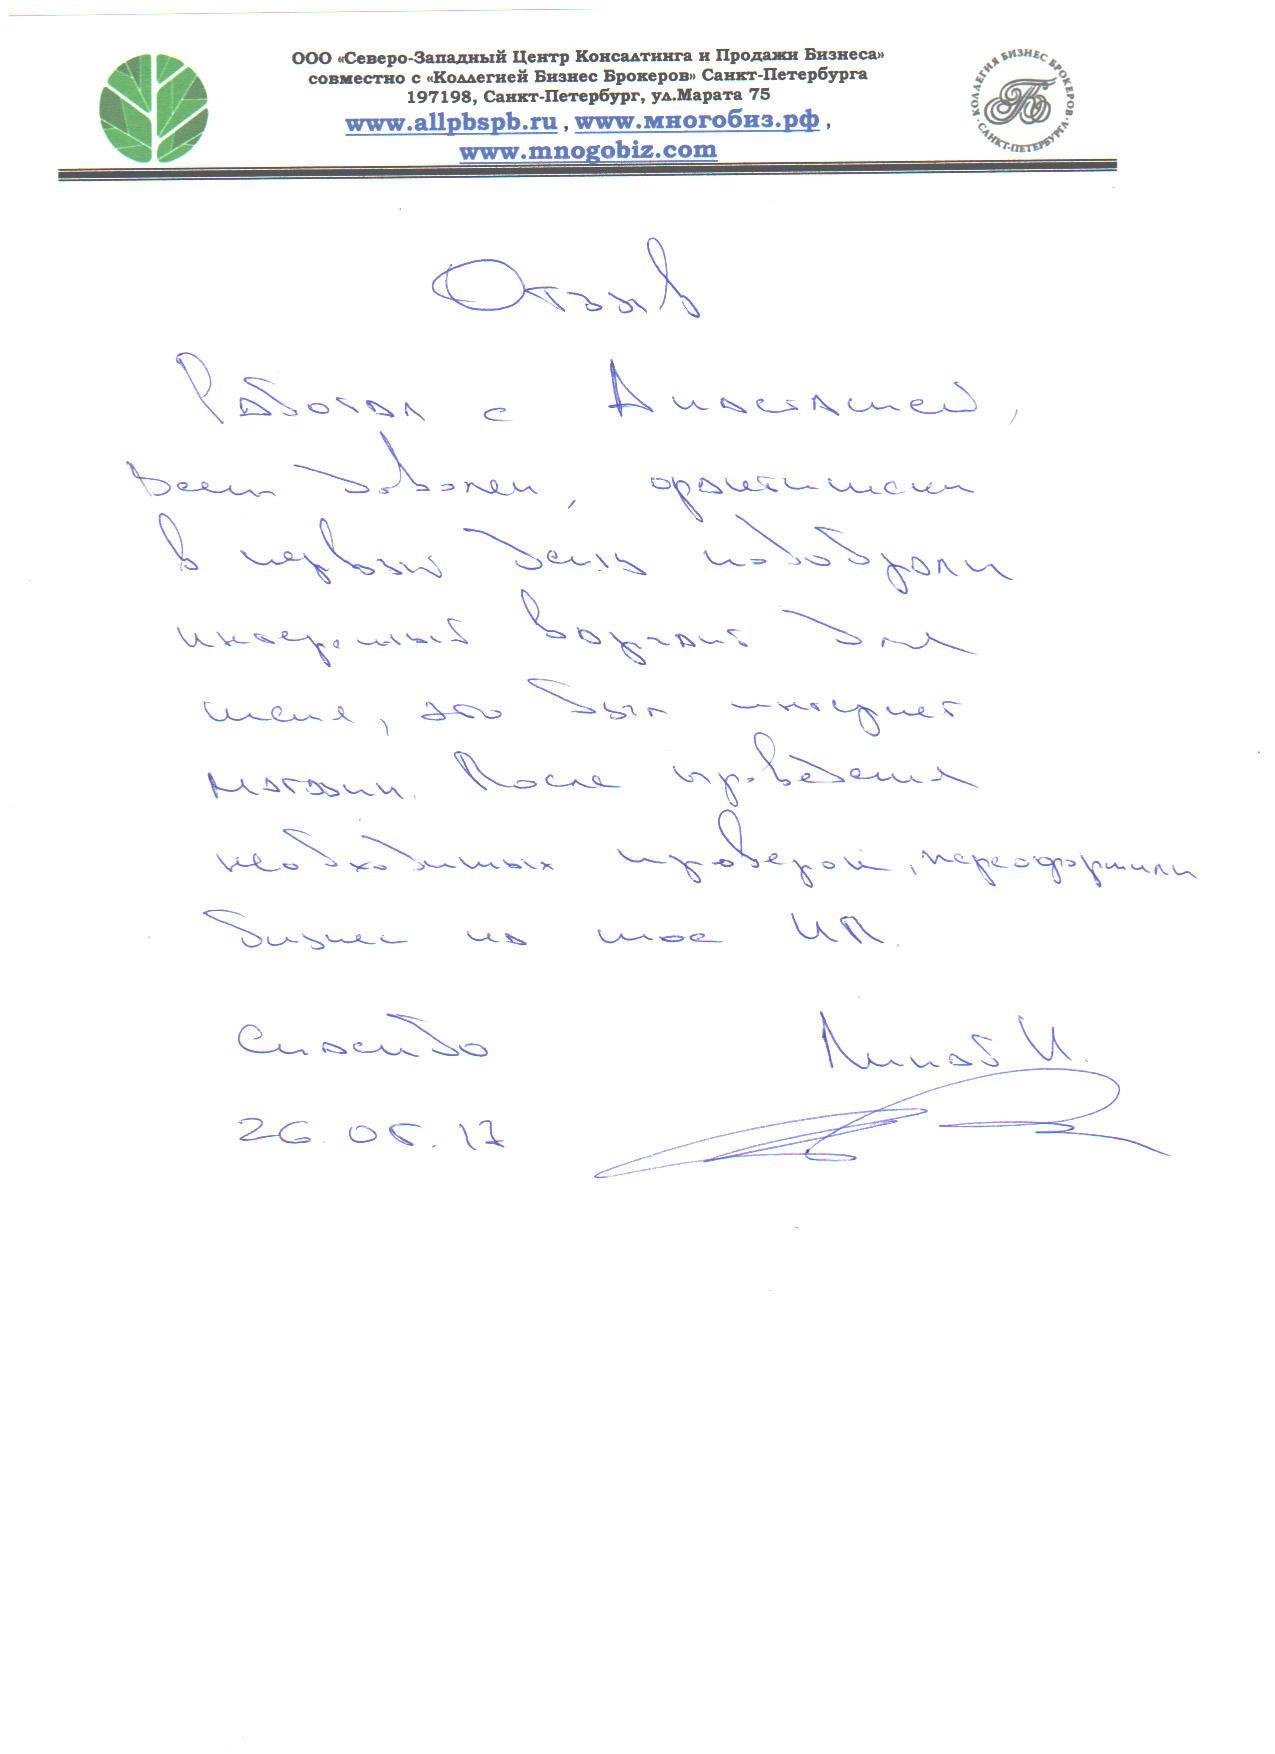 ООО «Северо-Западный Центр Консалтинга и Продажи Бизнеса»
совместно с «Коллегией Бизнес Брокеров» Санкт-Петербурга
197198, Санкт-Петербург, ул.Марата 75
www.allpbspb.ru , www.многобиз.рф ,
www.mnogobiz.com
КОЛЛЕГИЯ БИЗНЕС БРОКЕРОВ
САНКТ-ПЕТЕРБУРГА
Отзыв
Работал с Анастасией,
всем доволен,
в первый день подобрали
вариант для
меня, это был интернет
магазин. После проведения
необходимых проверок, переоформили
бизнес на мое ИП.
Спасибо
И.
26.05.17